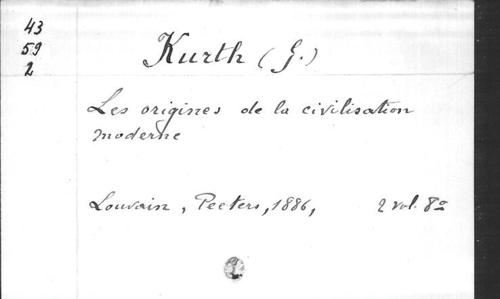 43
59
2
Kurth (G.)
Les origines de la civilisation
moderne
Louvain, Peeters, 1886, 2 vol. 8º